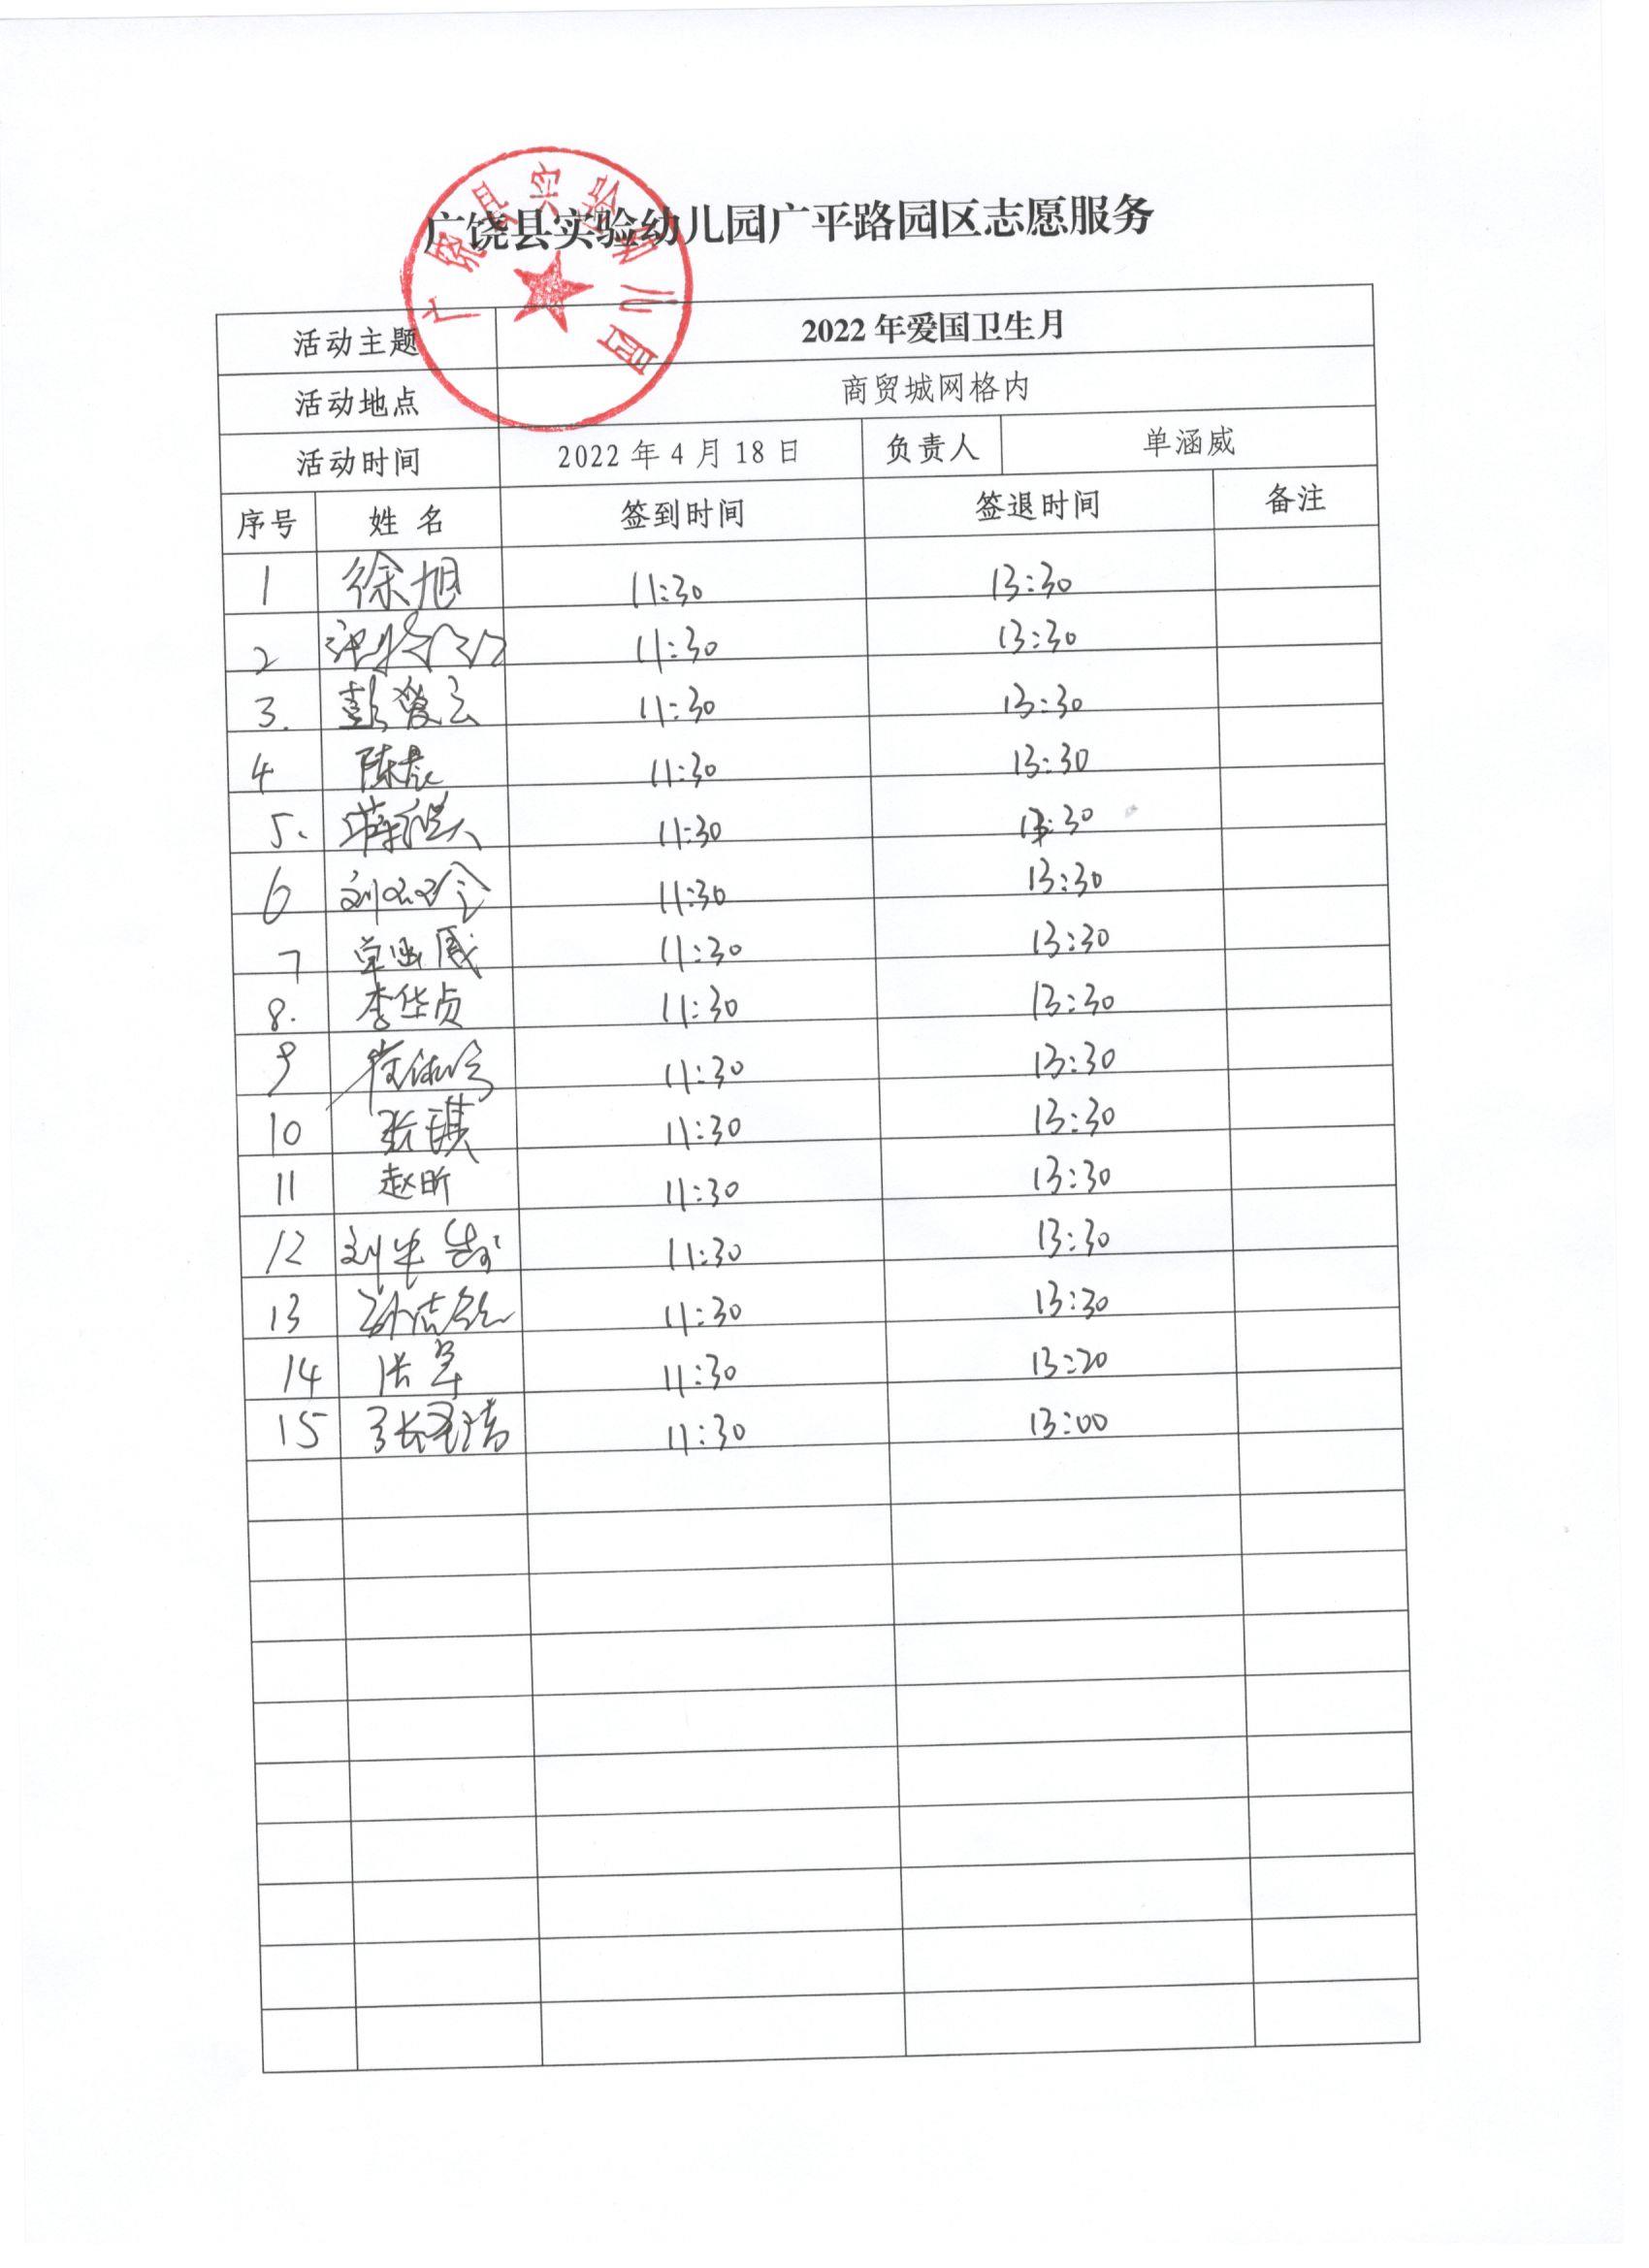 广饶县实验幼儿园
广饶县实验幼儿园广平路园区志愿服务
活动主题 2022年爱国卫生月
活动地点 商贸城网格内
活动时间 2022年4月18日 负责人 单涵威
序号 姓名 签到时间 签退时间 备注
1 徐旭 11:30 13:30
2 11:30 13:30
3. 彭 11:30 13:30
4 陈晨 11:30 13:30
5. 薛 11:30 13:30
6 刘 11:30 13:30
7 单涵威 11:30 13:30
8. 李华贞 11:30 13:30
9 11:30 13:30
10 张琪 11:30 13:30
11 赵昕 11:30 13:30
12 刘 11:30 13:30
13 孙 11:30 13:30
14 张军 11:30 13:20
15 张 11:30 13:00